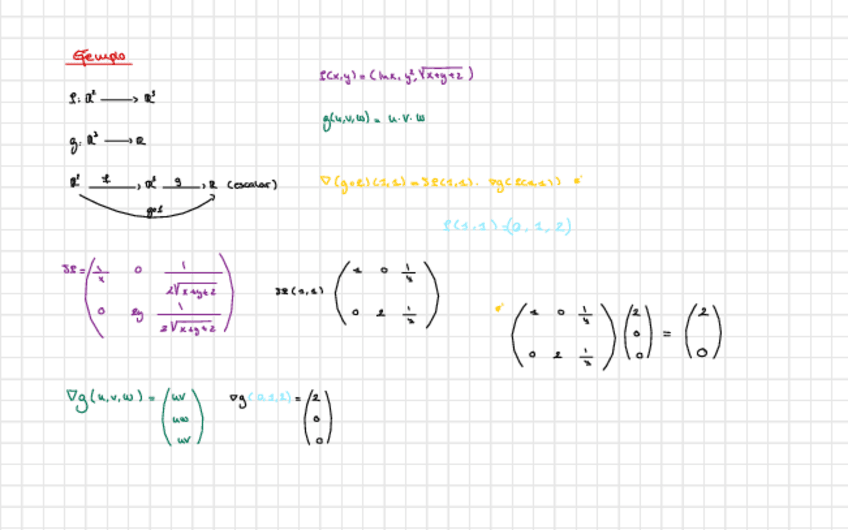 Ejemplo
f: R² → R³
g: R³ → R
R² f → R³ g → R (escalar)
g∘f
f(x,y) = (ln x, y², √x+y+2)
g(u,v,w) = u·v·w
∇(g∘f)(1,1) = Jf(1,1) · ∇g(f(1,1))
f(1,1) = (0, 1, 2)
Jf = ( 1/x 0 1/2√x+y+2
0 2y 1/2√x+y+2 )
Jf(1,1) ( 1 0 1/4
0 2 1/4 )
( 1 0 1/4
0 2 1/4 ) ( 2
0
0 ) = ( 2
0 )
∇g(u,v,w) = ( uv
uw
uv )
∇g(0,1,2) = ( 2
0
0 )